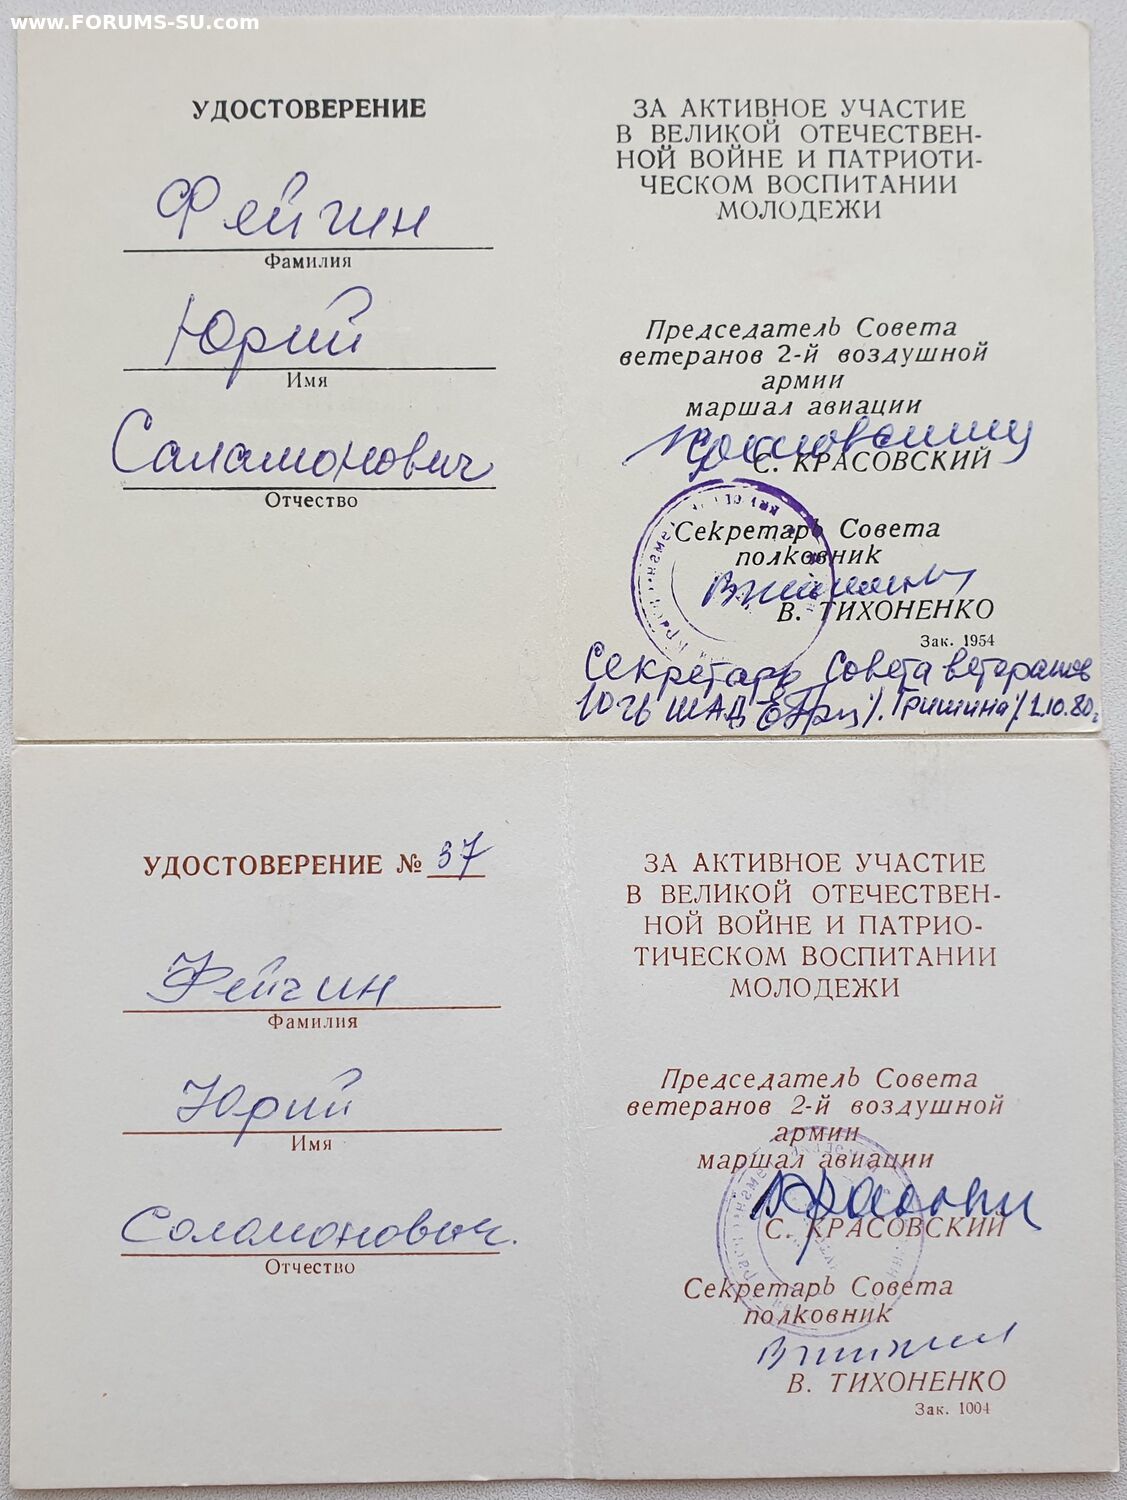 www.FORUMS-SU.com
УДОСТОВЕРЕНИЕ
Фейгин
Фамилия
Юрий
Имя
Саламонович
Отчество
ЗА АКТИВНОЕ УЧАСТИЕ
В ВЕЛИКОЙ ОТЕЧЕСТВЕН-
НОЙ ВОЙНЕ И ПАТРИОТИ-
ЧЕСКОМ ВОСПИТАНИИ
МОЛОДЕЖИ
Председатель Совета
ветеранов 2-й воздушной
армии
маршал авиации
С. КРАСОВСКИЙ
Секретарь Совета
полковник
В. ТИХОНЕНКО
Зак. 1954
Секретарь Совета ветеранов
10 гв ШАД /Гришина/ 1.10.80г
УДОСТОВЕРЕНИЕ № 37
Фейгин
Фамилия
Юрий
Имя
Соломонович.
Отчество
ЗА АКТИВНОЕ УЧАСТИЕ
В ВЕЛИКОЙ ОТЕЧЕСТВЕН-
НОЙ ВОЙНЕ И ПАТРИО-
ТИЧЕСКОМ ВОСПИТАНИИ
МОЛОДЕЖИ
Председатель Совета
ветеранов 2-й воздушной
армии
маршал авиации
С. КРАСОВСКИЙ
Секретарь Совета
полковник
В. ТИХОНЕНКО
Зак. 1004